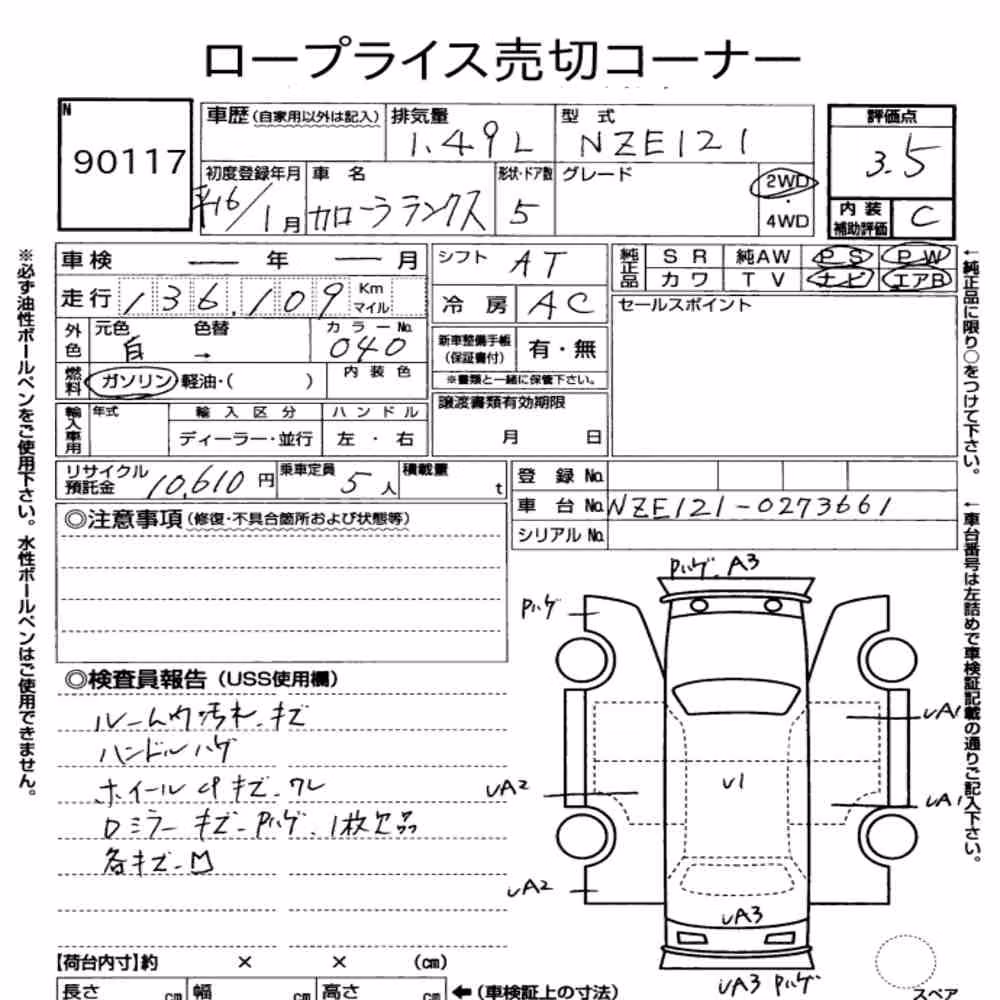 ロープライス売切コーナー
N
90117
車歴(自家用以外は記入)
排気量
1.49L
型式
NZE121
評価点
3.5
内装補助評価
C
初度登録年月
H16/1月
車名
カローラランクス
形状・ドア数
5
グレード
2WD
・
4WD
車検 ー 年 ー 月
シフト
AT
純正品
SR 純AW PS PW
カワ TV ナビ エアB
走行 136,109 Km マイル
冷房
AC
セールスポイント
外色
元色
白
色替
→
カラーNo.
040
新車整備手帳
(保証書付)
有・無
※書類と一緒に保管下さい。
燃料
ガソリン・軽油・( )
内装色
輸入車用
年式
輸入区分
ディーラー・並行
ハンドル
左・右
譲渡書類有効期限
月 日
リサイクル
預託金
10,610円
乗車定員
5人
積載量
t
登録No.
車台No. NZE121-0273661
シリアルNo.
◎注意事項(修復・不具合箇所および状態等)
◎検査員報告(USS使用欄)
ルーム内汚れ.キズ
ハンドルハゲ
ホイールcPキズ.ワレ
Dミラーキズ-Pハゲ.1枚欠品
各キズ-凹
Pハゲ.A3
Pハゲ
UA1
UA2
U1
UA1
UA2
UA3
UA3 Pハゲ
スペア
【荷台内寸】約 × × (cm)
長さ cm 幅 cm 高さ cm ←(車検証上の寸法)
※必ず油性ボールペンをご使用下さい。水性ボールペンはご使用できません。
←純正品に限り○をつけて下さい。
←車台番号は左詰めで車検証記載の通りご記入下さい。